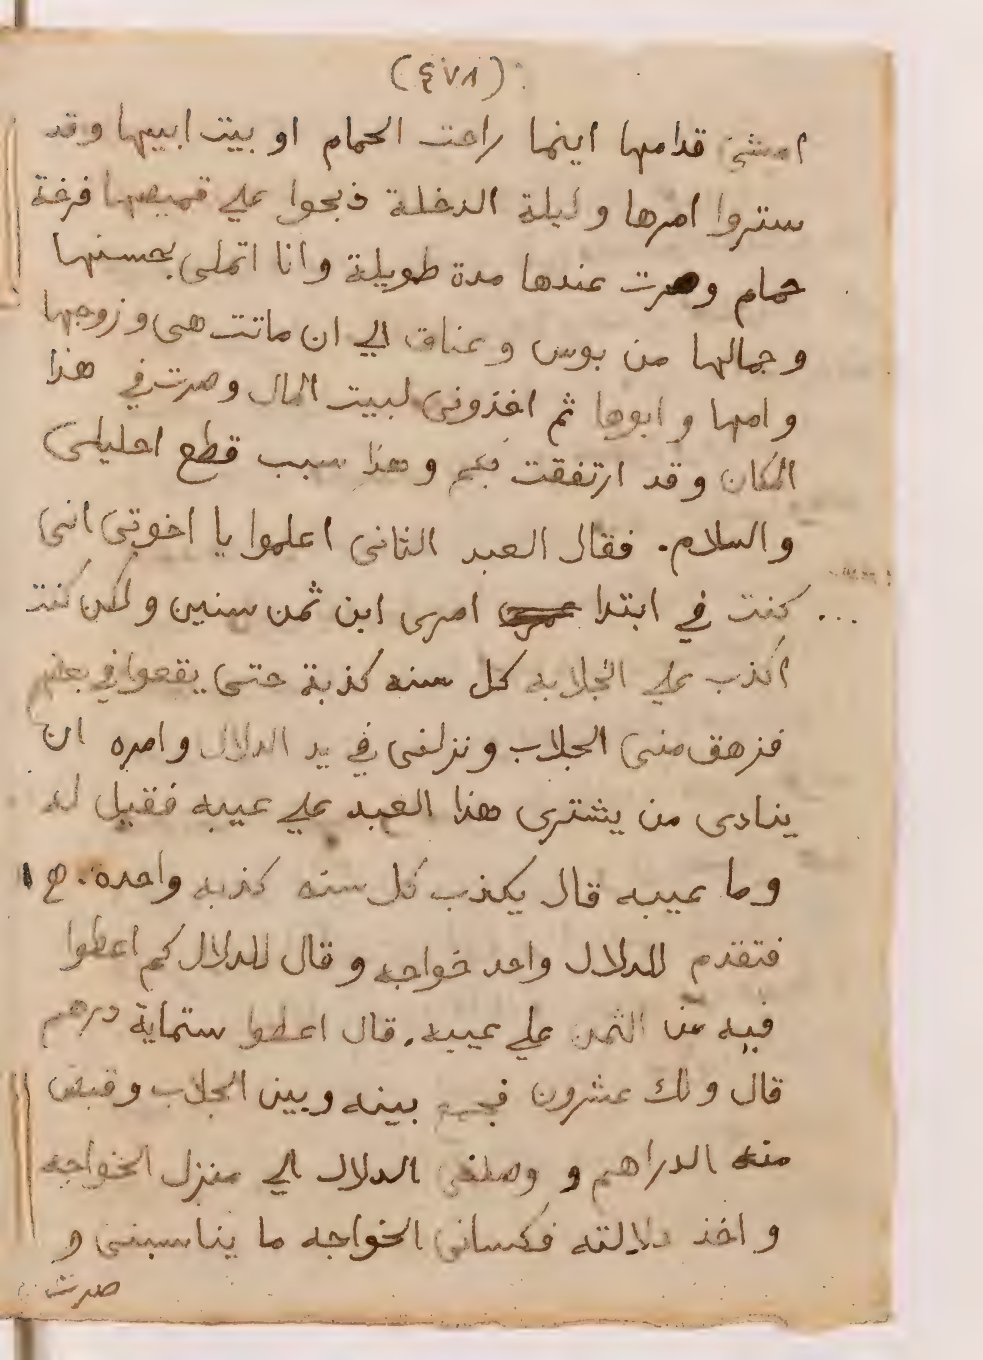 (٤٧٨)
امشى قدامها اينما راحت الحمام او بيت ابيها وقد
ستروا امرها وليلة الدخلة ذبحوا علي قميصها فرخة
حمام وصرت عندها مدة طويلة وانا اتملى بحسنها
وجمالها من بوس وعناق الي ان ماتت هى وزوجها
وامها وابوها ثم اخذونى لبيت المال وصرت في هذا
المكان وقد ارتفقت بكم وهذا سبب قطع احليلى
والسلام. فقال العبد الثانى اعلموا يا اخوتى انى
... كنت في ابتدا امرى ابن ثمن سنين ولكن كنت
اكذب علي الجلابه كل سنه كذبة حتى يقعوا في بعضهم
فزهق منى الجلاب ونزلنى في يد الدلال وامره ان
ينادى من يشترى هذا العبد علي عيبه فقيل له
وما عيبه قال يكذب كل سنه كذبه واحده.
فتقدم للدلال واحد خواجه وقال للدلال كم اعطوا
فيه من الثمن علي عيبه. قال اعطوا ستماية درهم
قال ولك عشرون فجمع بينه وبين الجلاب وقبض
منه الدراهم و وصلنى الدلال الي منزل الخواجه
واخذ دلالته فكسانى الخواجه ما يناسبنى و
صرت